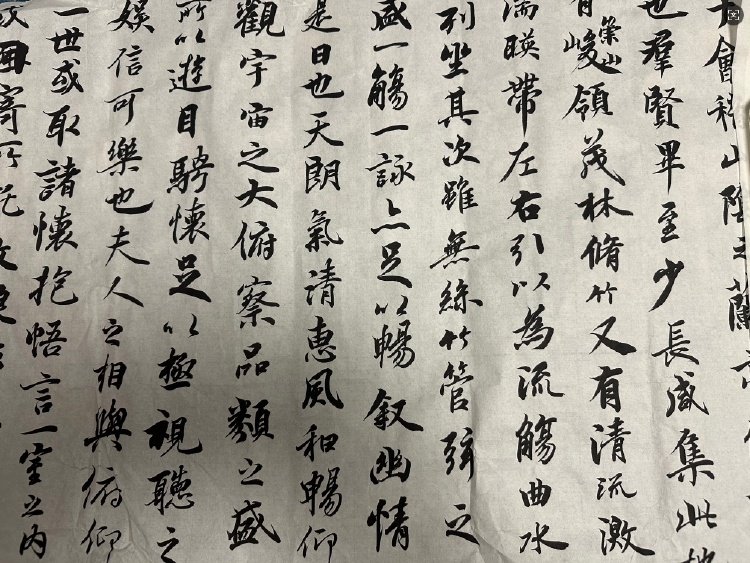 會稽山陰之蘭
也羣賢畢至少長咸集此地
有崇山峻領茂林脩竹又有清流激
湍暎帶左右引以為流觴曲水
列坐其次雖無絲竹管弦之
盛一觴一詠亦足以暢叙幽情
是日也天朗氣清惠風和暢仰
觀宇宙之大俯察品類之盛
所以遊目騁懷足以極視聽之
娛信可樂也夫人之相與俯仰
一世或取諸懷抱悟言一室之內
因寄所託放